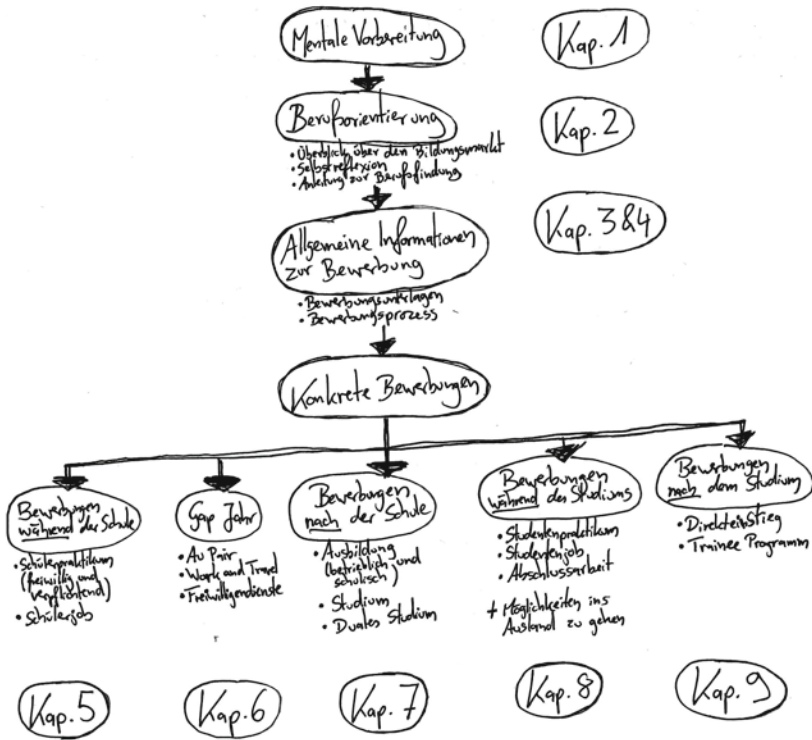 Mentale Vorbereitung
Kap. 1
Berufsorientierung
Kap. 2
• Überblick über den Bildungsmarkt
• Selbstreflexion
• Anleitung zur Berufsfindung
Kap. 3&4
Allgemeine Informationen
zur Bewerbung
• Bewerbungsunterlagen
• Bewerbungsprozess
Konkrete Bewerbungen
Bewerbungen
während der Schule
• Schülerpraktikum
(freiwillig und
verpflichtend)
• Schülerjob
Gap Jahr
• Au Pair
• Work and Travel
• Freiwilligendienste
Bewerbungen
nach der Schule
• Ausbildung
(betrieblich und
schulisch)
• Studium
• Duales Studium
Bewerbungen
während des Studiums
• Studentenpraktikum
• Studentenjob
• Abschlussarbeit
+ Möglichkeiten ins
Ausland zu gehen
Bewerbungen
nach dem Studium
• Direkteinstieg
• Trainee Programm
Kap. 5
Kap. 6
Kap. 7
Kap. 8
Kap. 9